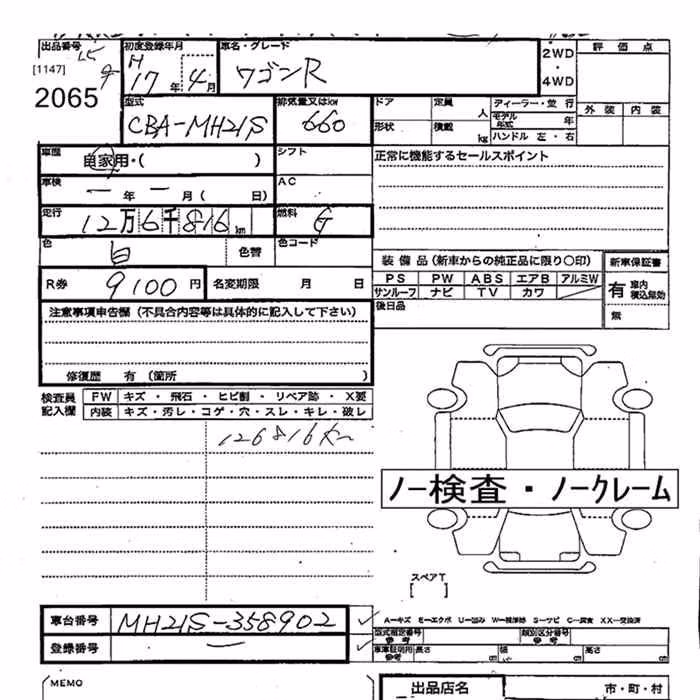 出品番号 初度登録年月 車名・グレード 2WD ・ 4WD 評価点
[1147] H 17年 4月 ワゴンR
2065 外装 内装
型式 排気量又はkw ドア 定員 人 ディーラー・並行
CBA-MH21S 660 形状 積載 kg モデル年式 年
ハンドル 左・右
車歴 自家用・( ) シフト 正常に機能するセールスポイント
車検 ー年ー月( 日) AC
走行 12万6千816km 燃料 G
色 白 色替 色コード 装備品(新車からの純正品に限り〇印) 新車保証書
R券 9100円 名変期限 月 日 PS PW ABS エアB アルミW 有 車内積込有効
サンルーフ ナビ TV カワ
注意事項申告欄(不具合内容等は具体的に記入して下さい) 後日品 無
修復歴 有 (箇所 )
検査員記入欄 FW キズ・飛石・ヒビ割・リペア跡・X要
内装 キズ・汚レ・コゲ・穴・スレ・キレ・破レ
126816km
ノー検査・ノークレーム
スペアT
[ ]
車台番号 MH21S-358902 A―キズ E―エクボ U―凹み W―補修跡 S―サビ C―腐食 XX―交換済
型式指定番号 参考 類別区分番号 参考
登録番号 ー 車庫証明用参考 長さ cm 幅 cm 高さ cm
MEMO 出品店名 市・町・村